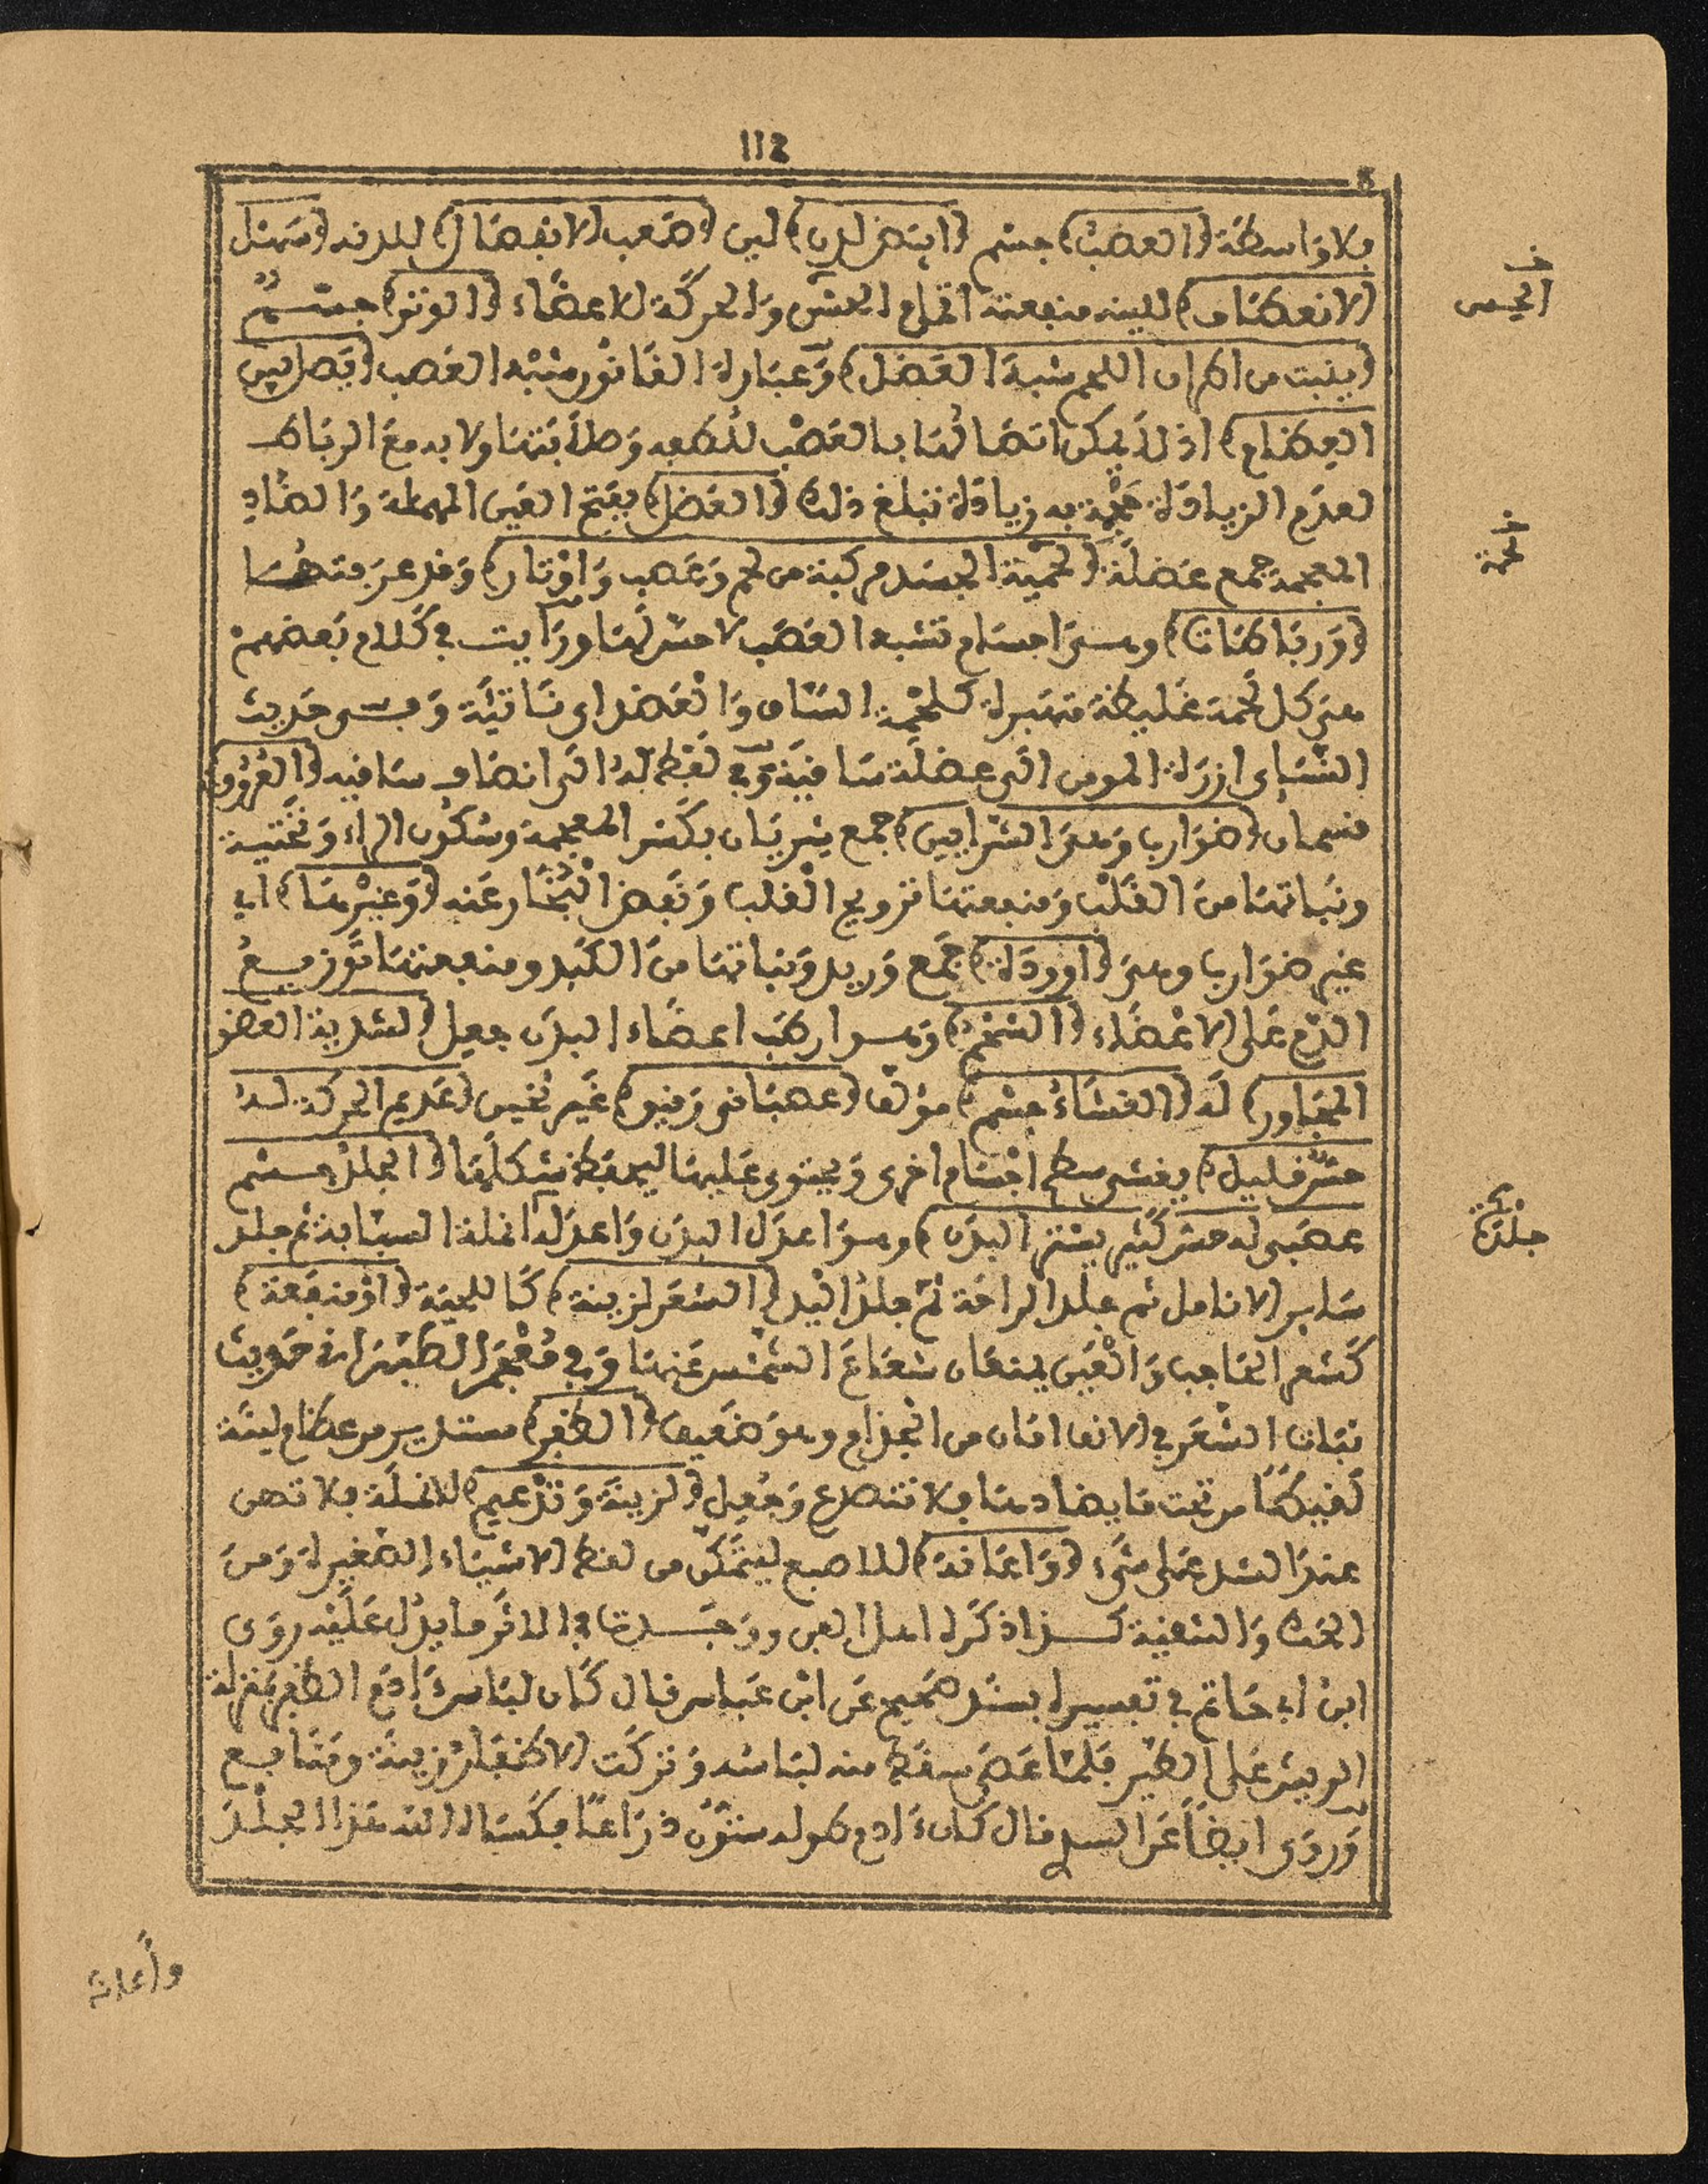 112
بلا واسطة (العصب) جسم (ابيض لدن) لين (صعب الانفصال) للدونه (سهل
الانعطاف) للينه منفعته اتمام الحس والحركة للاعضاء (الوتر) جسم
(ينبت من اطراف اللحم شبه العضل) وعبارة القانون شبه العصب (يصل بين
العظام) اذ لم يمكن اتصالها بالعصب للطفه وصلابتها ولا بد مع الرباط
لعدم الزيادة حجمه به زيادة تبلغ ذلك (العضل) بفتح العين المهملة والضاد
المعجمة جمع عضلة (لحمية الجسد مركبة من لحم وعصب واوتار) وقد عرفتهما
(ورباطات) وهي اجسام تشبه العصب لا حس لها ورايت في كلام بعضهم
هي كل لحمة غليظة منتبرة كلحمة الساق والعضد اي ناتئة وفي حديث
النساي ازرة المومن الى عضلة ساقيه وفي لفظ له الى انصاف ساقيه (العروق)
قسمان (ضوارب وهي الشرايين) جمع شريان بكسر المعجمة وسكون الراء وتحتية
ونباتها من القلب ومنفعتها ترويح القلب ونفض البخار عنه (وغيرها) اي
غير ضوارب وهي (اوردة) جمع وريد ونباتها من الكبد ومنفعتها توزيع
الدم على الاعضاء (الشحم) وهو ارطب اعضاء البدن جعل (لتندية العضو
المجاور) له (الغشاء جسم) مولف (عصباني رقيق) غير ثخين (عديم الحركة له
حس قليل) يغشي سطح اجسام اخرى ويحتوي عليها ليحفظ شكلها (الجلد جسم
عصبي له حس كثير يستر البدن) وهو اعدل البدن واعدله انملة السبابة ثم جلد
ساير الانامل ثم جلد الراحة ثم جلد اليد (الشعر لزينة) كاللحية (او منفعة)
كشعر الحاجب والعين يمنعان شعاع الشمس عنها وفي معجم الطبراني حديث
نبات الشعر في الانف امان من الجذام وهو ضعيف (الظفر) مستدير من عظام لينة
لتتطامن تحت ما يصادمها فلا تنصدع وجعل (لزينة وتدعيم) للانملة فلا تهن
عند الشد على شيء (واعانة) للاصبع ليتمكن من لقط الاشياء الصغيرة ومن
الحك والتنقية كذا ذكره اهل الفن ووجدت في الاثر ما يدل عليه روى
ابن ابي حاتم في تفسيره بسند صحيح عن ابن عباس قال كان لباس ءادم الظفر بمنزلة
الريش على الطير فلما عصى سقط منه لباسه وتركت الاظفار زينة ومنافع
وروى ايضا عن السدي قال كان ءادم طوله ستون ذراعا فكساه الله هذا الجلد
الحس
لحمة
جلدة
واعانه